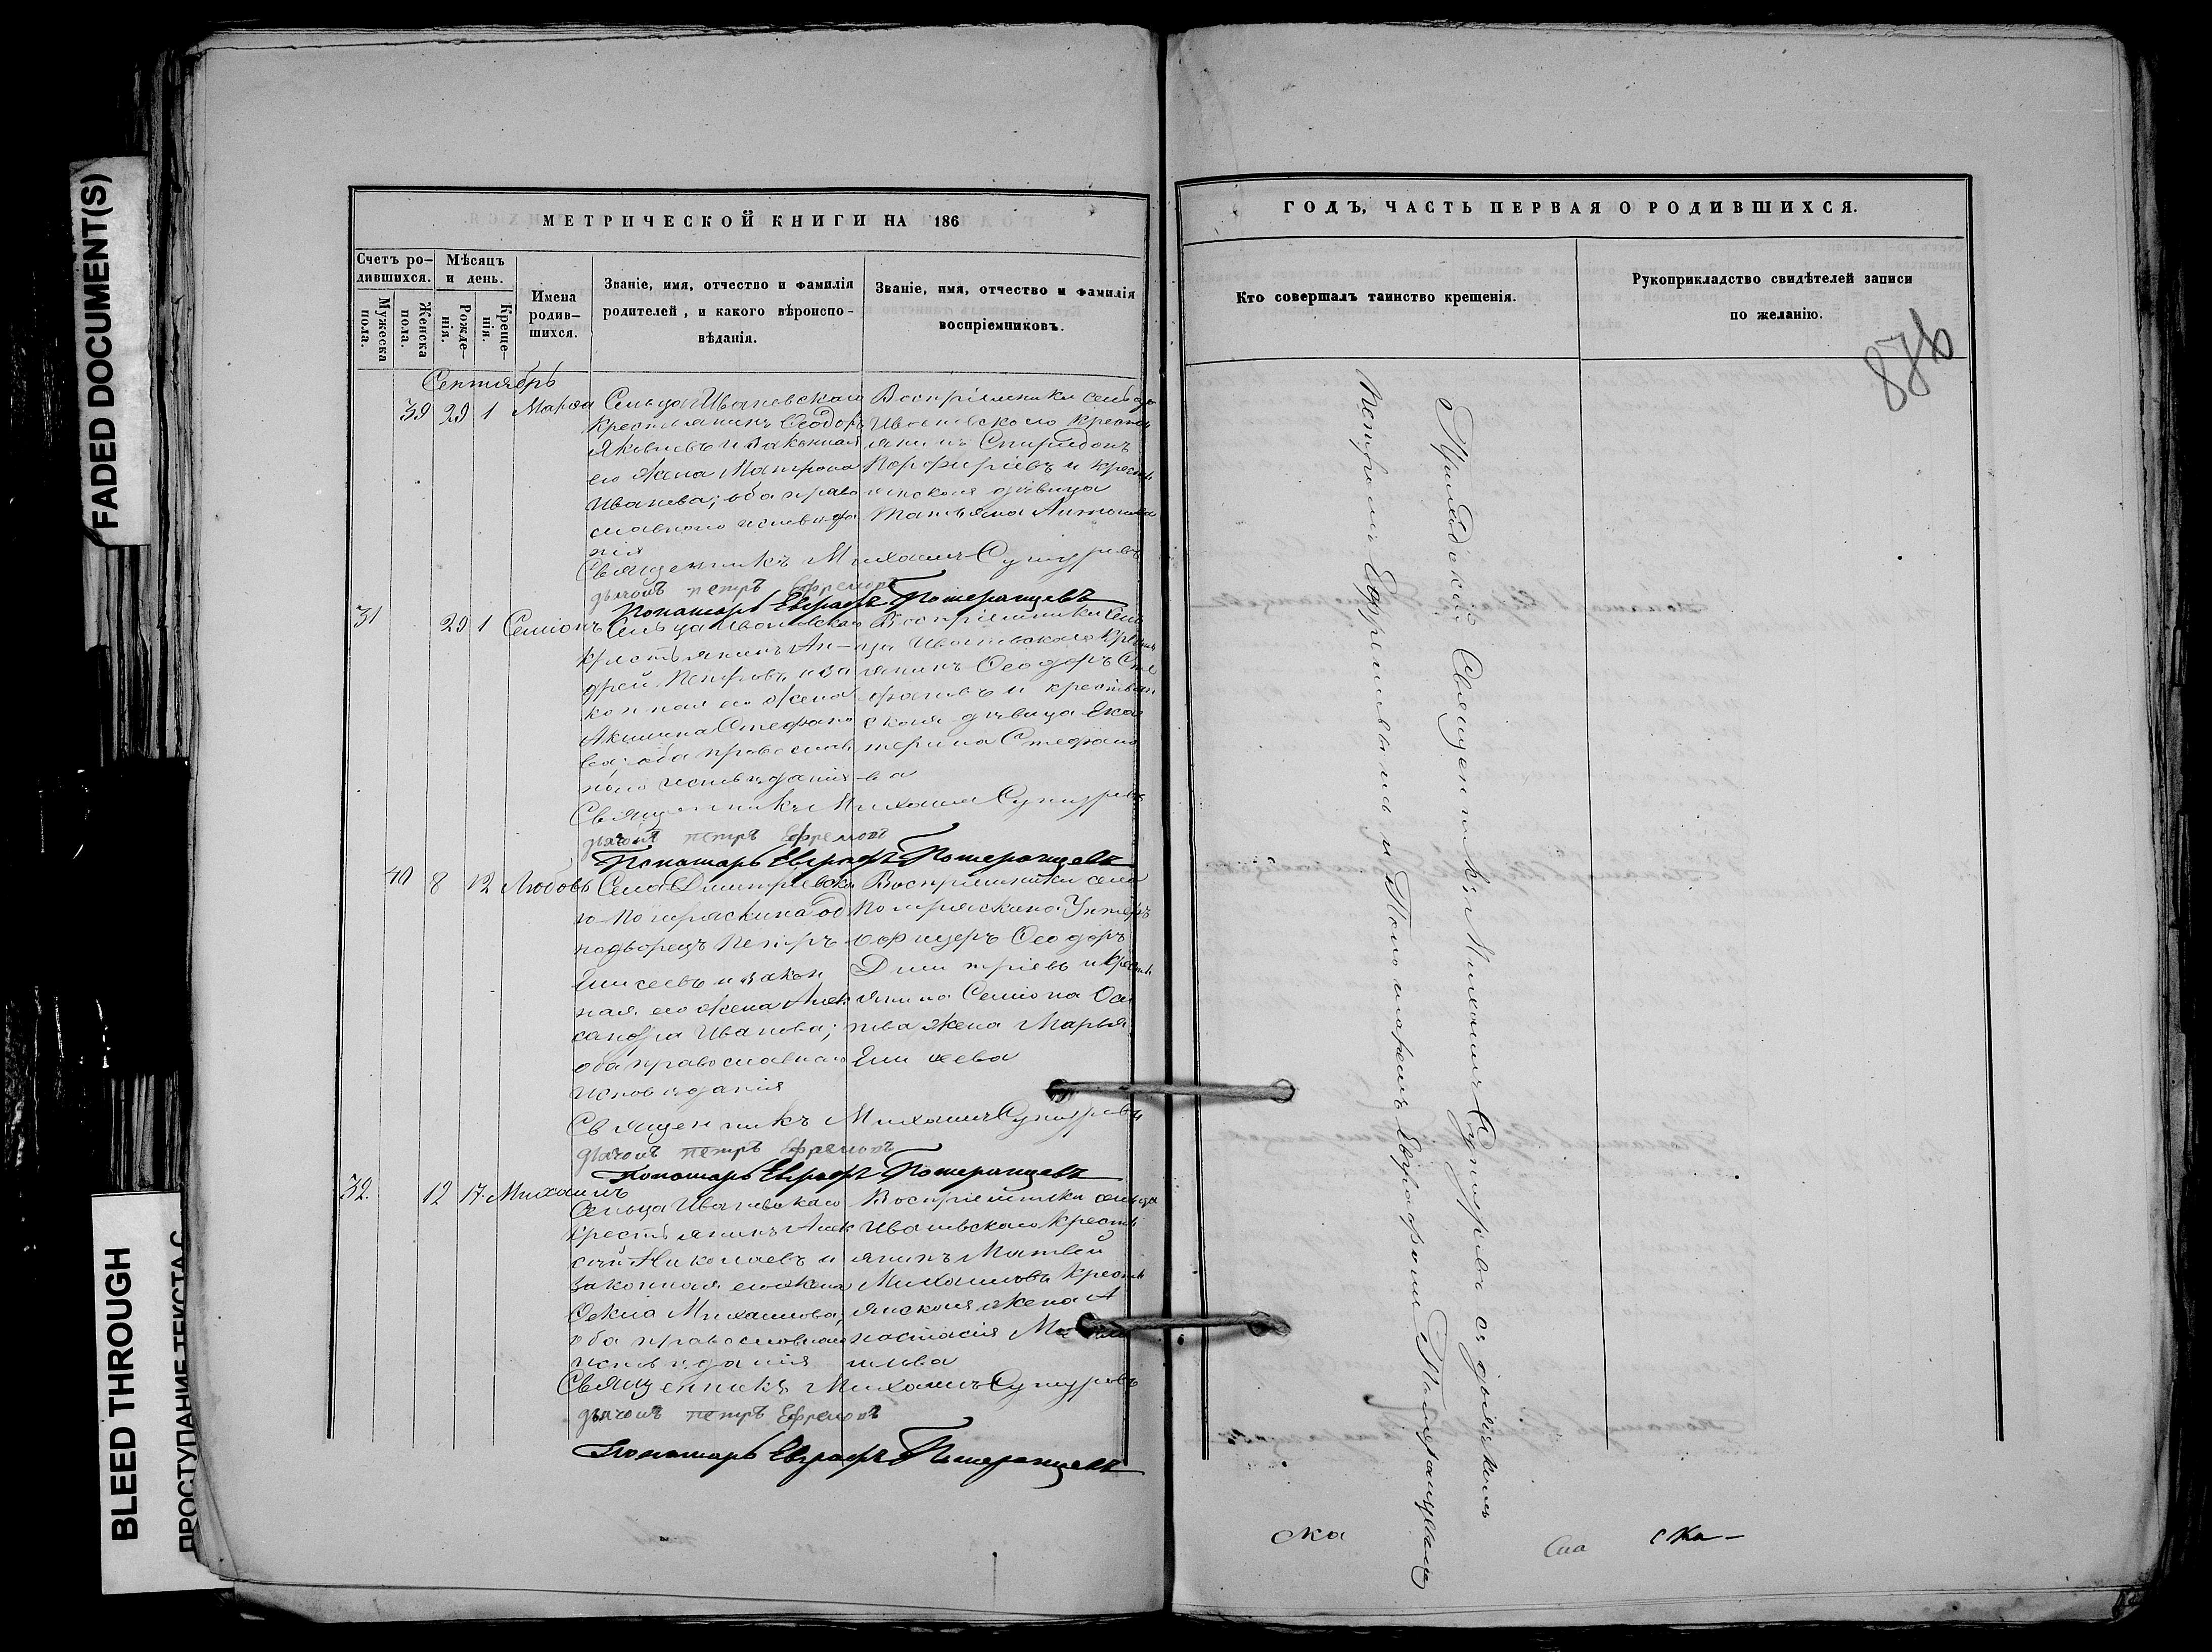 FADED DOCUMENT(S)
BLEED THROUGH
ПРОСТУПАНИЕ ТЕКСТА С
МЕТРИЧЕСКОЙ КНИГИ НА 186
Счетъ ро-
дившихся.
Мужеска
пола.
Женска
пола.
Мѣсяцъ
и день.
Рожде-
нія.
Креще-
нія.
Имена
родив-
шихся.
Званіе, имя, отчество и фамилія
родителей, и какого вѣроиспо-
вѣданія.
Званіе, имя, отчество и фамилія
воспріемниковъ.
Сентябрь
39 29 1 Марѳа
Сельца Ивановскаго
крестьянинъ Ѳеодоръ
Яковлевъ и законная
его жена Матрона
Иванова; оба право
славнаго исповѣда
нія
Воспріемники сельца
Ивановскаго крестья
янинъ Спиридонъ
Порфиріевъ и кресть
янская дѣвица
Татьяна Антонова
Священникъ Михаилъ
дьячокъ петръ Ефремовъ
Пономарь Евграфъ Померанцевъ
31 29 1 Симеонъ
Сельца Ивановскаго
крестьянинъ Ан-
дрей Петровъ и за
конная его жена
Акилина Стефано
ва; оба православ
наго исповѣданія
Воспріемники Сель
ца Ивановскаго кресть
янинъ Ѳеодоръ Сте
фановъ и крестьян
ская дѣвица Ека
терина Стефано
ва
Священникъ Михаилъ
дьячокъ петръ Ефремовъ
Пономарь Евграфъ Померанцевъ
40 8 12 Любовь
Села Димитріевска
го-Погоряскина од
нодворецъ Петръ
Елисеевъ и закон
ная его жена Алек
сандра Иванова;
оба православнаго
исповѣданія
Воспріемники села
Унтеръ
офицеръ Ѳеодоръ
Димитріевъ и кресть
янина Симеона Оси
пова жена Марья
Елисеева
Священникъ Михаилъ
дьячокъ петръ Ефремовъ
Пономарь Евграфъ Померанцевъ
32. 12 17. Михаилъ
Сельца Ивановскаго
крестьянинъ Алек
сѣй Николаевъ и
законная его жена
Ѳекла Михаилова;
оба православнаго
исповѣданія
Воспріемники сельца
Ивановскаго кресть
янинъ Матвей
Михаиловъ и кресть
янская жена А
настасія
Священникъ Михаилъ
дьячокъ петръ Ефремовъ
Пономарь Евграфъ Померанцевъ
ГОДЪ, ЧАСТЬ ПЕРВАЯ О РОДИВШИХСЯ.
Кто совершалъ таинство крещенія.
Рукоприкладство свидѣтелей записи
по желанію.
878
Приходскій Священникъ Михаилъ съ дьячкомъ
Петромъ Ефремовымъ и Пономаремъ Евграфомъ Померанцевымъ
ска
ска-